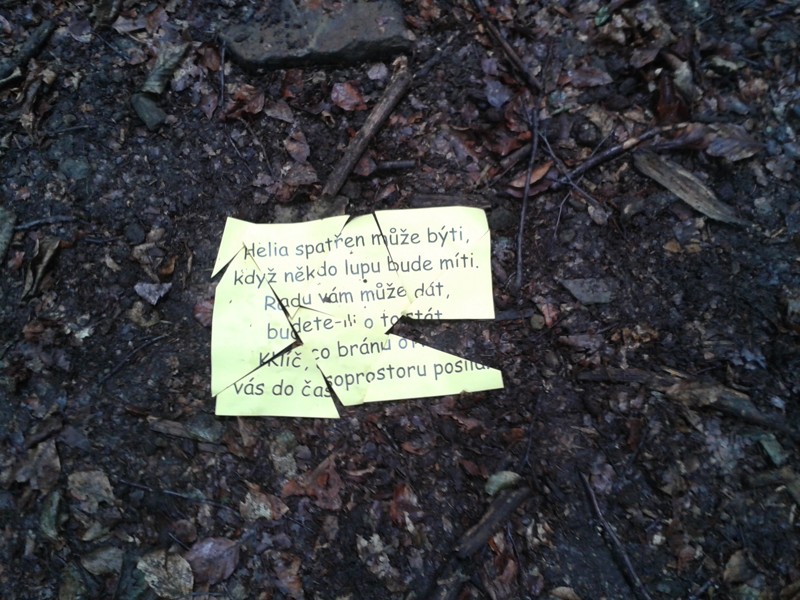 Helia spatřen může býti,
když někdo lupu bude míti.
Radu vám může dát,
budete-li o to stát.
Klíč, co bránu
vás do časoprostoru